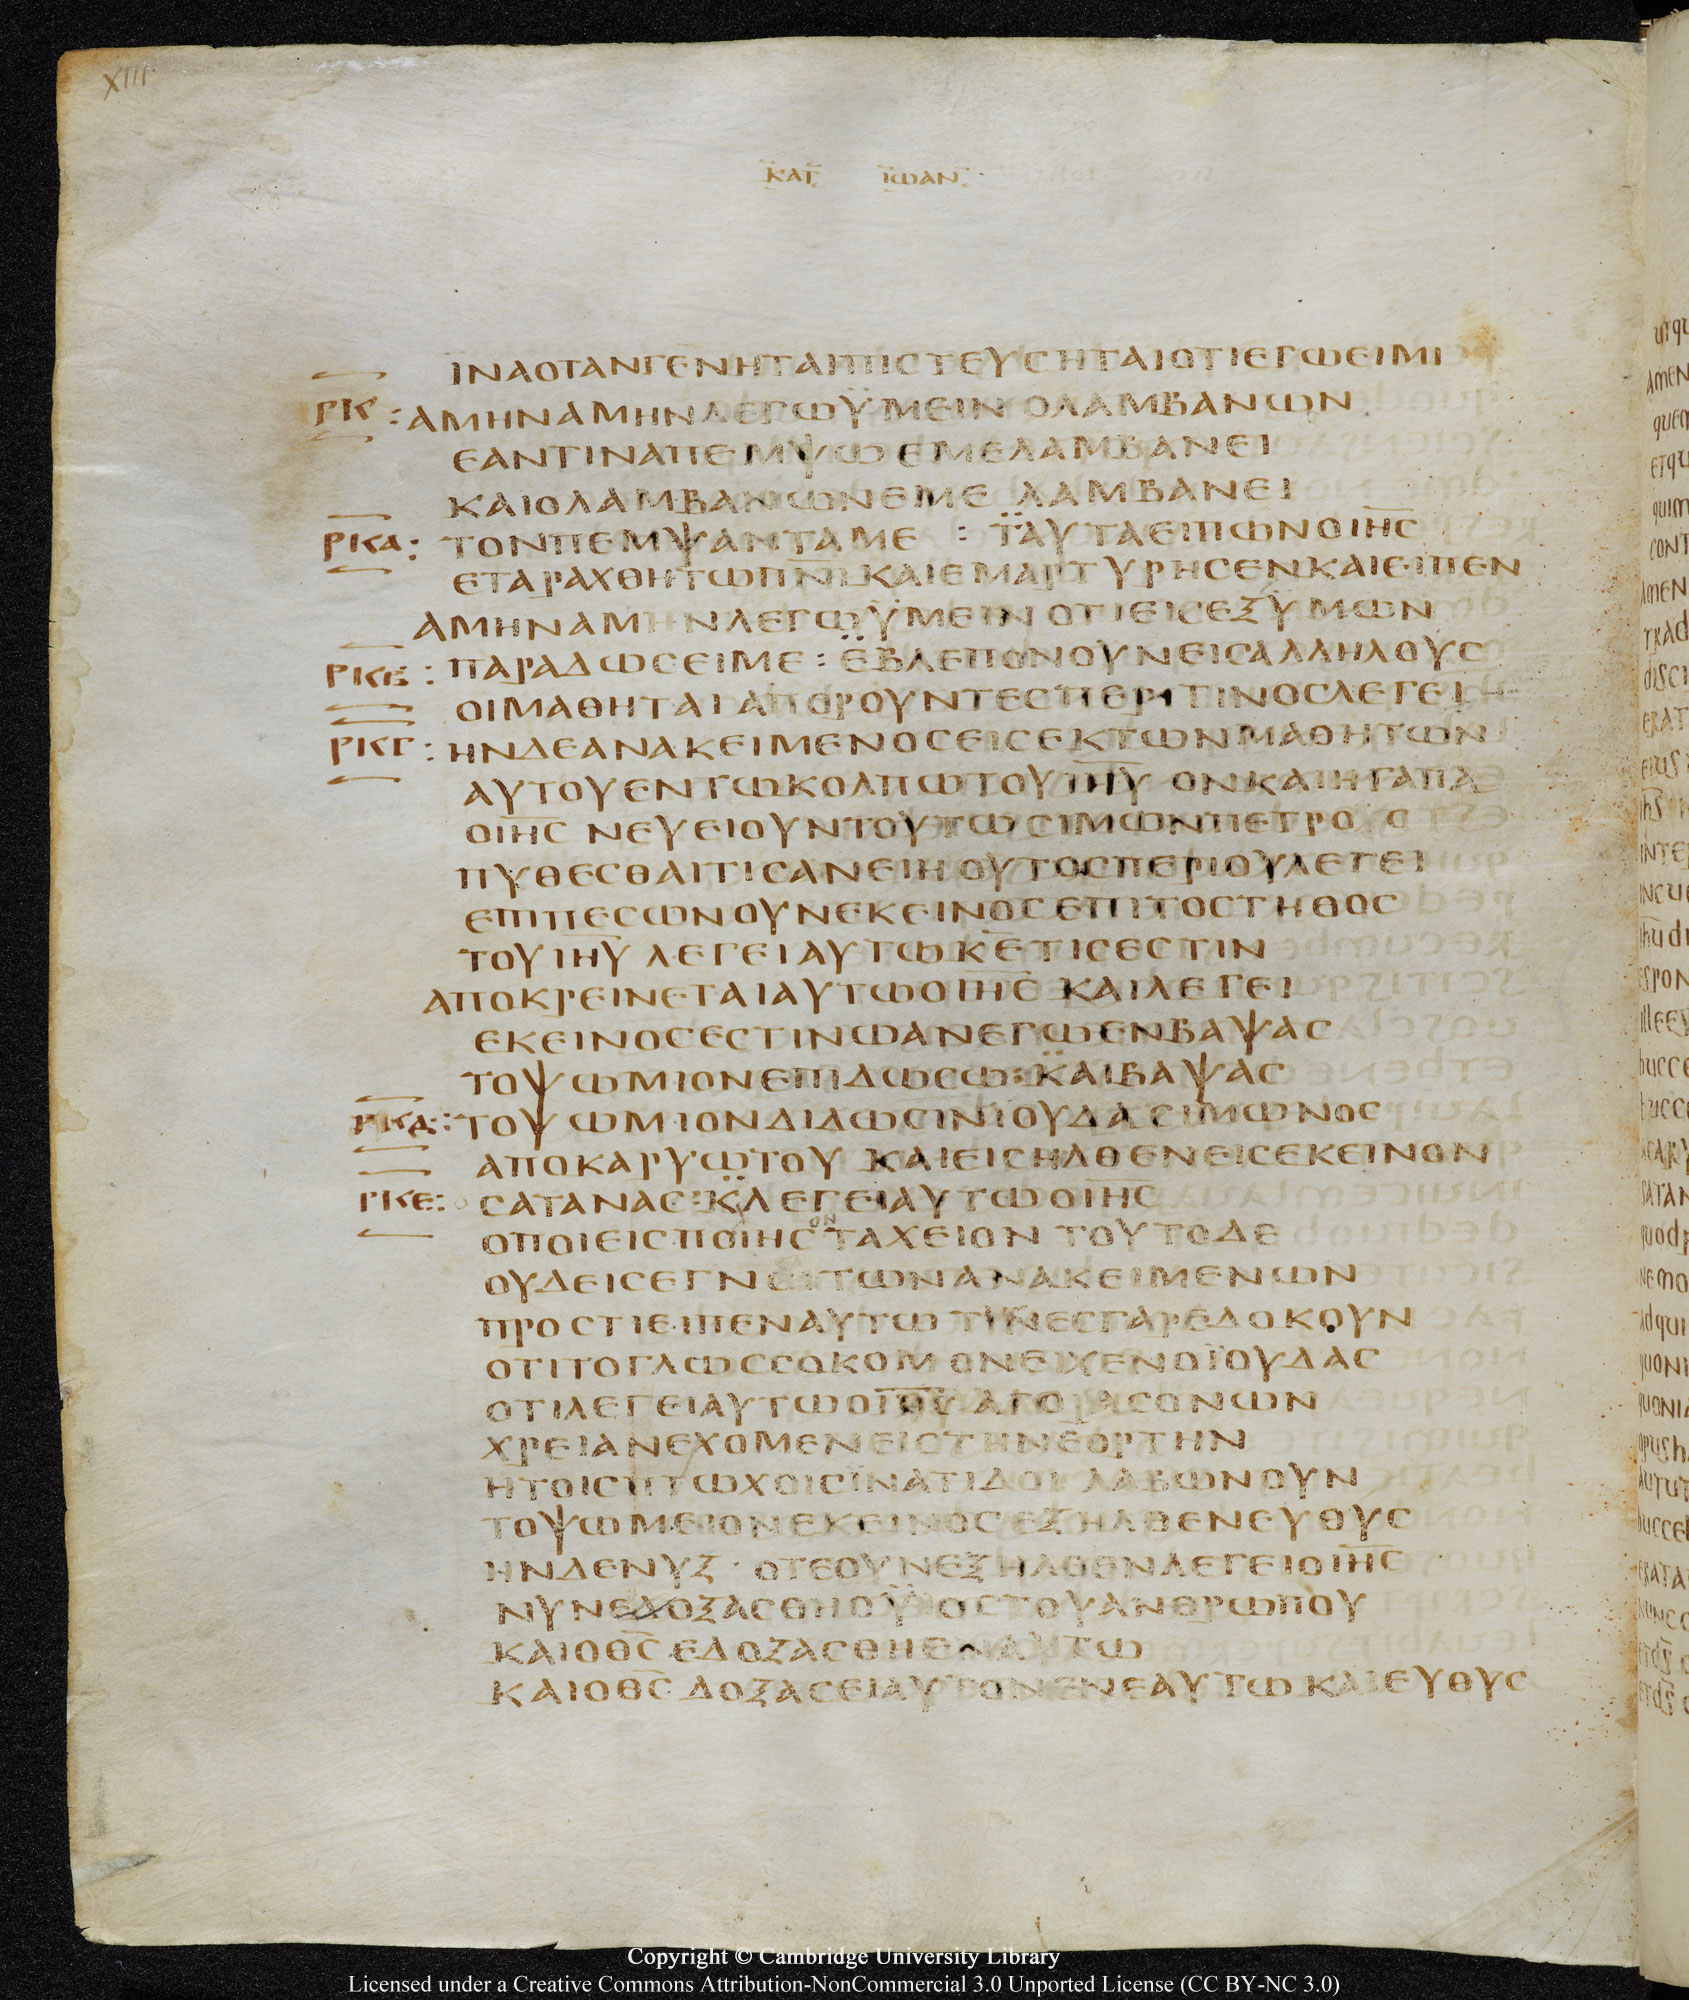 XIII
ΚΑΤ ΙΩΑΝ
ΙΝΑΟΤΑΝΓΕΝΗΤΑΙΠΙΣΤΕΥΣΗΤΑΙΟΤΙΕΓΩΕΙΜΙ
ΡΚ : ΑΜΗΝΑΜΗΝΛΕΓΩΫΜΕΙΝ ΟΛΑΜΒΑΝΩΝ
ΕΑΝΤΙΝΑΠΕΜΨΩΕΜΕΛΑΜΒΑΝΕΙ
ΚΑΙΟΛΑΜΒΑΝΩΝΕΜΕ ΛΑΜΒΑΝΕΙ
ΡΚΑ : ΤΟΝΠΕΜΨΑΝΤΑΜΕ : Τ̈ΑΥΤΑΕΙΠΩΝΟΙΗΣ
ΕΤΑΡΑΧΘΗΤΩΠΝΙΚΑΙΕΜΑΡΤΥΡΗΣΕΝΚΑΙΕΙΠΕΝ
ΑΜΗΝΑΜΗΝΛΕΓΩΫΜΕΙΝ ΟΤΙΕΙΣΕΞΫΜΩΝ
ΡΚΒ : ΠΑΡΑΔΩΣΕΙΜΕ : Ε̈ΒΛΕΠΟΝΟΥΝΕΙΣΑΛΛΗΛΟΥΣ
ΟΙΜΑΘΗΤΑΙΑΠΟΡΟΥΝΤΕΣΠΕΡΙΤΙΝΟΣΛΕΓΕΙ
ΡΚΓ : ΗΝΔΕΑΝΑΚΕΙΜΕΝΟΣΕΙΣΕΚΤΩΝΜΑΘΗΤΩΝ
ΑΥΤΟΥΕΝΤΩΚΟΛΠΩΤΟΥΙΗΥ ΟΝΚΑΙΗΓΑΠΑ
ΟΙΗΣ ΝΕΥΕΙΟΥΝΤΟΥΤΩΣΙΜΩΝΠΕΤΡΟΣ
ΠΥΘΕΣΘΑΙΤΙΣΑΝΕΙΗΟΥΤΟΣΠΕΡΙΟΥΛΕΓΕΙ
ΕΠΙΠΕΣΩΝΟΥΝΕΚΕΙΝΟΣΕΠΙΤΟΣΤΗΘΟΣ
ΤΟΥΙΗΥ ΛΕΓΕΙΑΥΤΩΚΕΤΙΣΕΣΤΙΝ
ΑΠΟΚΡΕΙΝΕΤΑΙΑΥΤΩΟΙΗΣ ΚΑΙΛΕΓΕΙ
ΕΚΕΙΝΟΣΕΣΤΙΝΩΑΝΕΓΩΕΝΒΑΨΑΣ
ΤΟΨΩΜΙΟΝΕΠΙΔΩΣΩ:Κ̈ΑΙΒΑΨΑΣ
ΡΚΔ : ΤΟΨΩΜΙΟΝΔΙΔΩΣΙΝΙΟΥΔΑΣΙΜΩΝΟΣ
ΑΠΟΚΑΡΥΩΤΟΥ ΚΑΙΕΙΣΗΛΘΕΝΕΙΣΕΚΕΙΝΟΝ
ΡΚΕ : ΣΑΤΑΝΑΣ:Κ̈ΛΕΓΕΙΑΥΤΩΟΙΗΣ
ΟΠΟΙΕΙΣΠΟΙΗΣΟΝΤΑΧΕΙΟΝ ΤΟΥΤΟΔΕ
ΟΥΔΕΙΣΕΓΝΩΤΩΝΑΝΑΚΕΙΜΕΝΩΝ
ΠΡΟΣΤΙΕΙΠΕΝΑΥΤΩ ΤΙΝΕΣΓΑΡΕΔΟΚΟΥΝ
ΟΤΙΤΟΓΛΩΣΣΟΚΟΜΟΝΕΙΧΕΝΟΪΟΥΔΑΣ
ΟΤΙΛΕΓΕΙΑΥΤΩΟΙΗΣ ΑΓΟΡΑΣΟΝΩΝ
ΧΡΕΙΑΝΕΧΟΜΕΝΕΙΣΤΗΝΕΟΡΤΗΝ
ΗΤΟΙΣΠΤΩΧΟΙΣΪΝΑΤΙΔΟΙ ΛΑΒΩΝΟΥΝ
ΤΟΨΩΜΕΙΟΝΕΚΕΙΝΟΣΕΞΗΛΘΕΝΕΥΘΥΣ
ΗΝΔΕΝΥΞ · ΟΤΕΟΥΝΕΞΗΛΘΕΝΛΕΓΕΙΟΙΗΣ
ΝΥΝΕΔΟΞΑΣΘΗΟΫΙΟΣΤΟΥΑΝΘΡΩΠΟΥ
ΚΑΙΟΘΣ ΕΔΟΞΑΣΘΗΕΝΑΥΤΩ
ΚΑΙΟΘΣ ΔΟΞΑΣΕΙΑΥΤΟΝΕΝΕΑΥΤΩΚΑΙΕΥΘΥΣ
Copyright © Cambridge University Library
Licensed under a Creative Commons Attribution-NonCommercial 3.0 Unported License (CC BY-NC 3.0)